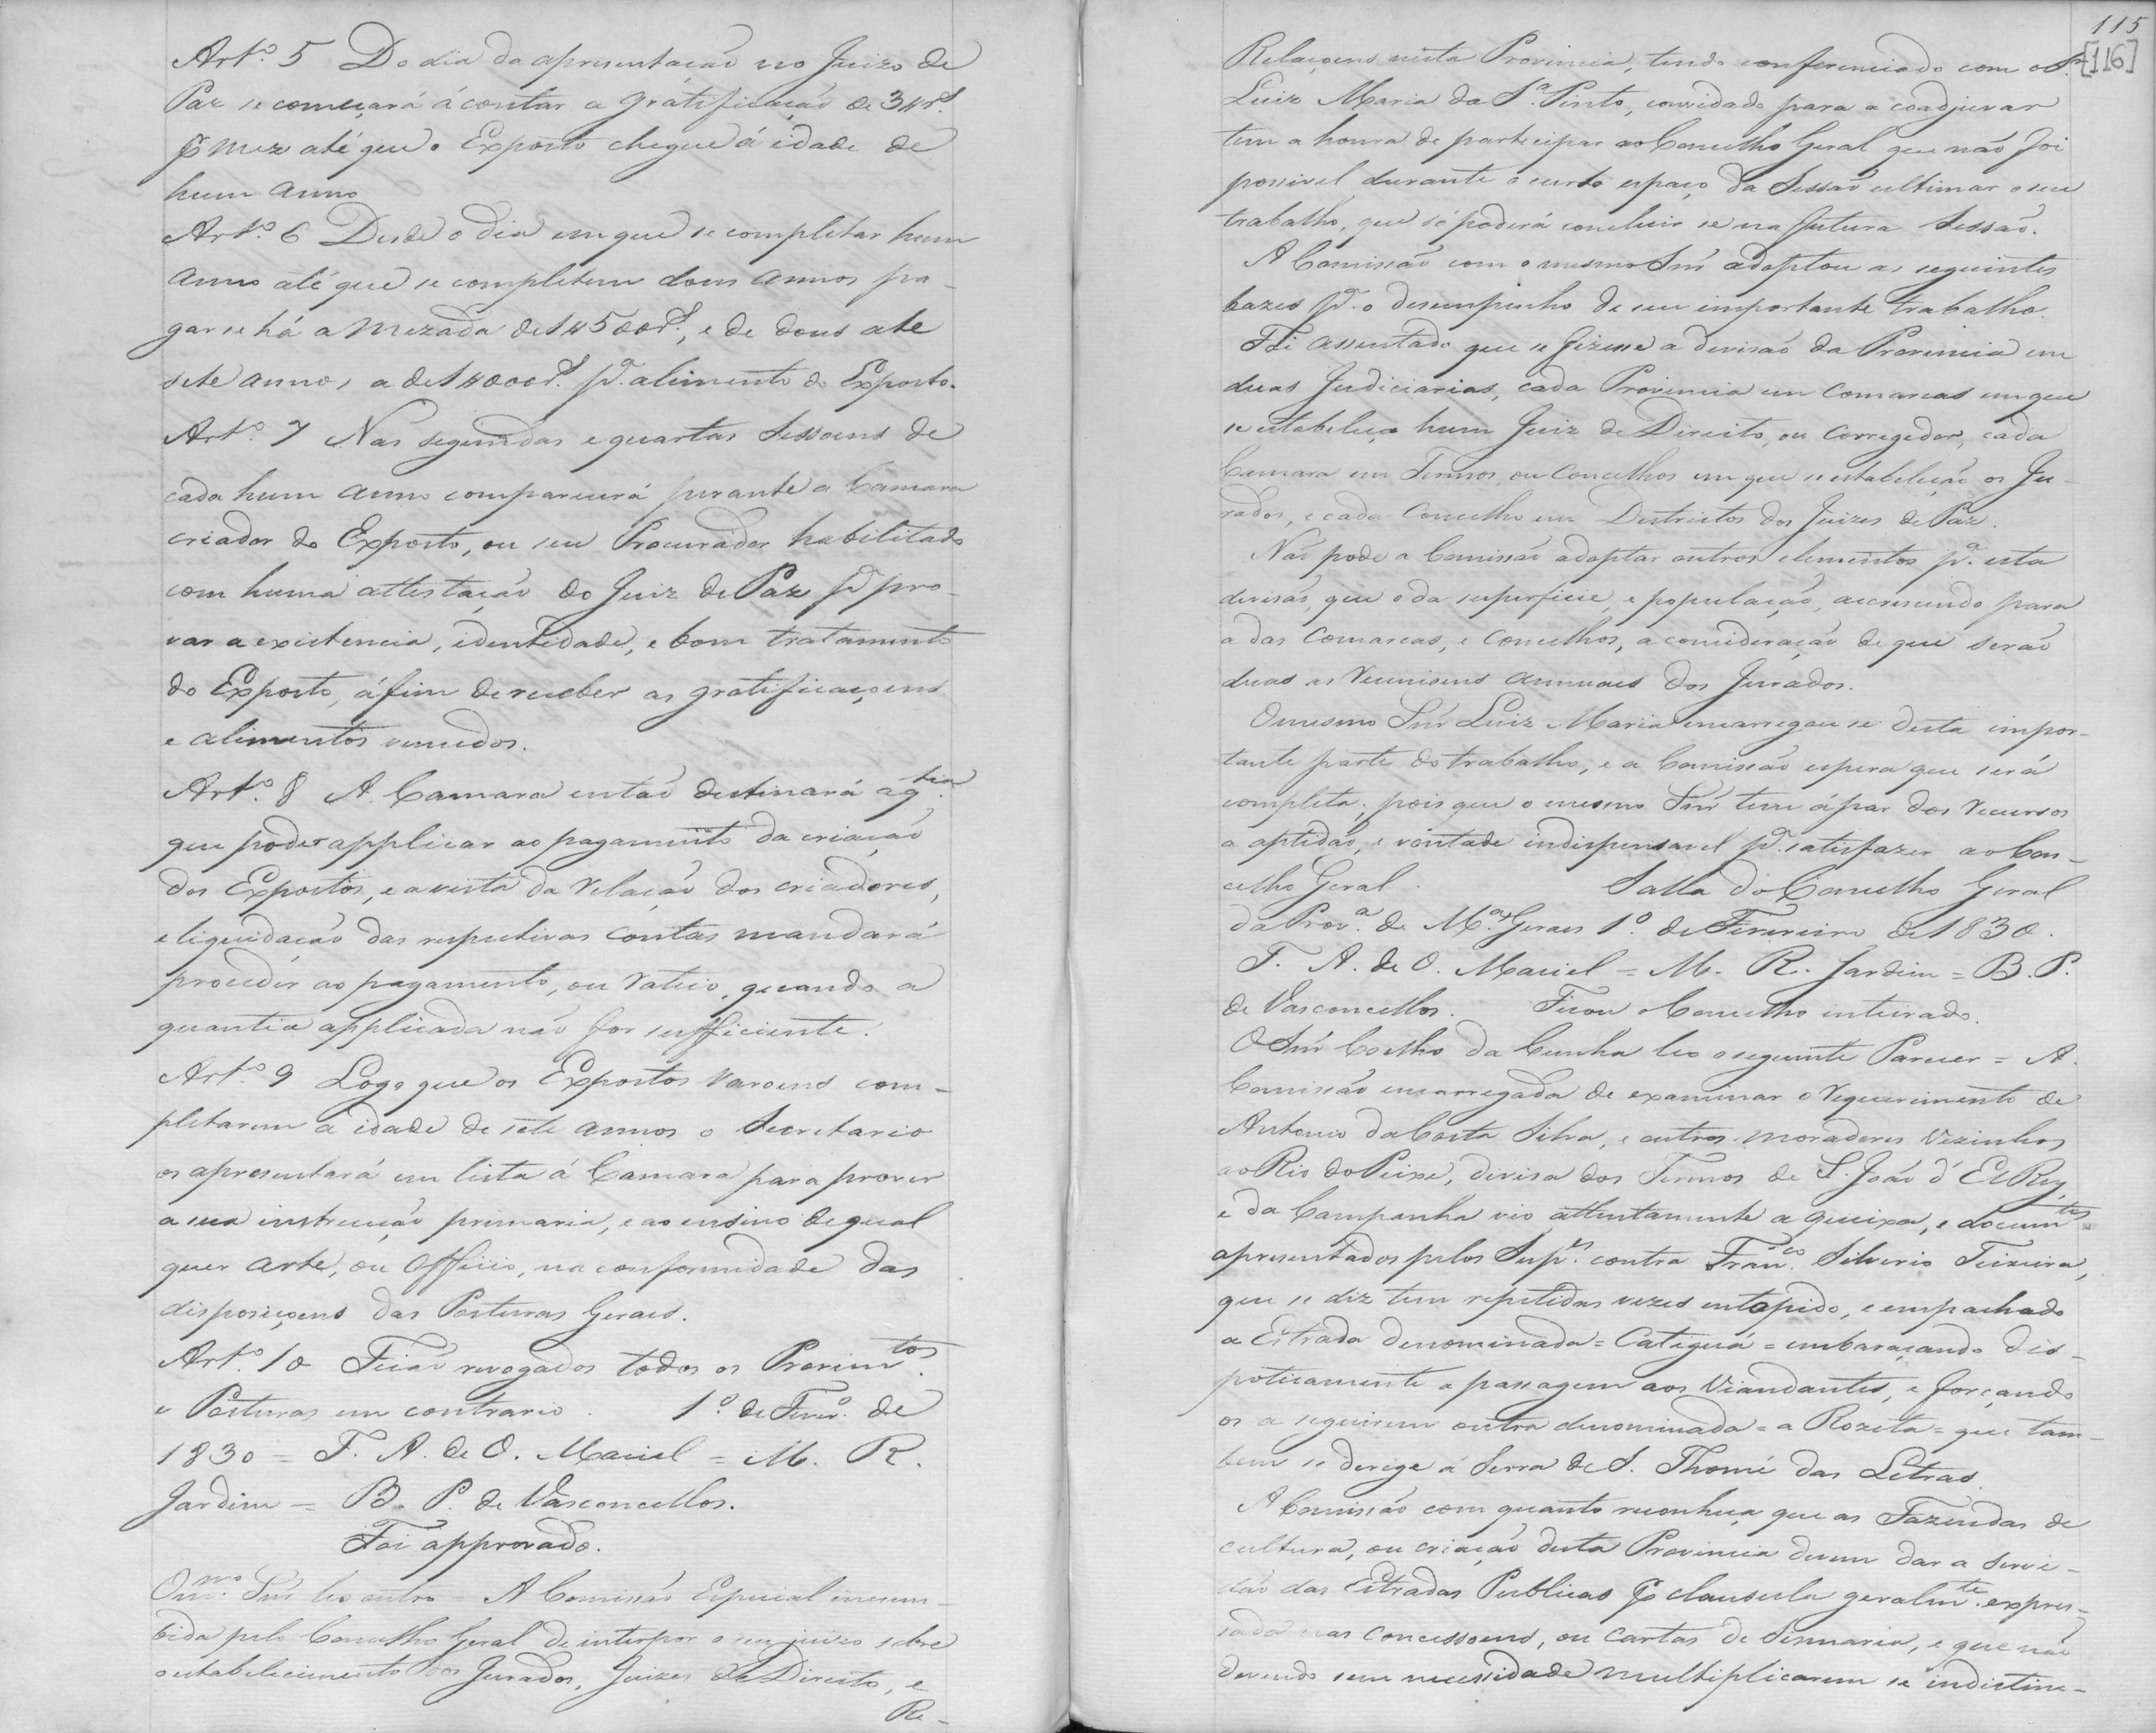 Art.º 5 Do dia da apresentação no Juizo de
Paz se começará á contar a gratificação de 3$rs.
p mez até que o Exposto chegue á idade de
hum anno
Art.º 6 Desde o dia em que se completar hum
anno até que se completem dous annos pa-
gar se há a mezada de 1$500rs., e de dous ate
sete annos a de 1$000rs. pª. alimento do Exposto.
Art.º 7 Nas segundas e quartas Sessoens de
cada hum anno comparecerá perante a Camara
criador do Exposto, ou seu Procurador habilitado
com huma attestação do Juiz de Paz pª pro-
var a existencia, identidade, e bom tratamento
do Exposto, áfim de receber as gratificaçoens
e alimentos vencidos.
Art.º 8 A Camara então destinará a qtia.
que poder applicar ao pagamento da criação
dos Expostos, e a vista da relação dos criadores,
e liquidação das respectivas contas mandará
proceder ao pagamento, ou rateio, quando a
quantia applicada não for sufficiente.
Art.º 9 Logo que os Expostos varoens com-
pletarem a idade de sete annos o Secretario
os apresentará em lista á Camara para prover
a sua instrucção primaria, e ao ensino de qual
quer arte, ou Officio, na conformidade das
disposiçoens das Posturas Geraes.
Art.º 10 Ficão revogados todos os Provimtos.
e Posturas em contrario. 1.º de Fever.º de
1830 = F. A. de O. Maciel = M. R.
Jardim = B. P. de Vasconcellos.
Foi approvado.
O mmo. Snr. leo outro = A Comissão Especial incum-
bida pelo Conselho Geral de interpor o seu juizo sobre
o estabelecimento dos Jurados, Juizes de Direito, e
Re-
115
[116]
Relaçoens nesta Provincia, tendo conferenciado com o Sr.
Luiz Maria da S.ª Pinto, convidado para a coadjuvar
tem a honra de participar ao Conselho Geral que não foi
possivel durante o curto espaço da Sessão ultimar o seu
trabalho, que só poderá concluir se na futura Sessão.
A Comissão com o mesmo Snr adoptou as seguintes
bazes pª. o desempenho de seu importante trabalho.
Foi assentado que se fizesse a divisão da Provincia em
duas Judiciarias, cada Provincia em Comarcas em que
se estabeleça hum Juiz de Direito, ou Corregedor, cada
Camara em Termos, ou Concelhos em que se estabeleção os Ju-
rados, e cada Concelho em Destrictos dos Juizes de Paz.
Não pode a Comissão adoptar outros elementos pª. esta
divisão, que o da superficie, e população, accrescendo para
a das Comarcas, e Concelhos, a consideração de que serão
duas as reunioens annuaes dos Jurados.
O mesmo Snr Luiz Maria encarregou se desta impor-
tante parte do trabalho, e a Comissão espera que será
completa; pois que o mesmo Snr tem á par dos recursos
a aptidão, e vontade indispensavel pª. satisfazer ao Con-
celho Geral. Salla do Conselho Geral
da Prov.ª de M.as Geraes 1.º de Fevereiro de 1830.
F. A. de O. Maciel = M. R. Jardim = B. P.
de Vasconcellos. Ficou o Conselho inteirado.
O Snr Coelho da Cunha leo o seguinte Parecer = A
Comissão encarregada de examinar o requerimento de
Antonio da Costa Silva, e outros moradores vizinhos
ao Rio do Peixe, divisa dos Termos de S. João d' El Rey,
e da Campanha vio attentamente a queixa, e documtos
apresentados pelos Supes. contra Franco. Silverio Teixeira,
que se diz tem repetidas vezes entapido, e empachado
a Estrada denominada = Catiguá = embaraçando des-
poticamente a passagem aos Viandantes, e forçando
os a seguirem outra denominada = a Rozeta = que tam-
bem se derige á Serra de S. Thomé das Letras.
A Comissão com quanto reconheça que as Fazendas de
cultura, ou criação desta Provincia devem dar a servi-
dão das Estradas Publicas p clausula geralmte. expres-
sada nas Concessoens, ou Cartas de Sesmaria, e que não
devendo sem necessidade multiplicarem se indistinc-